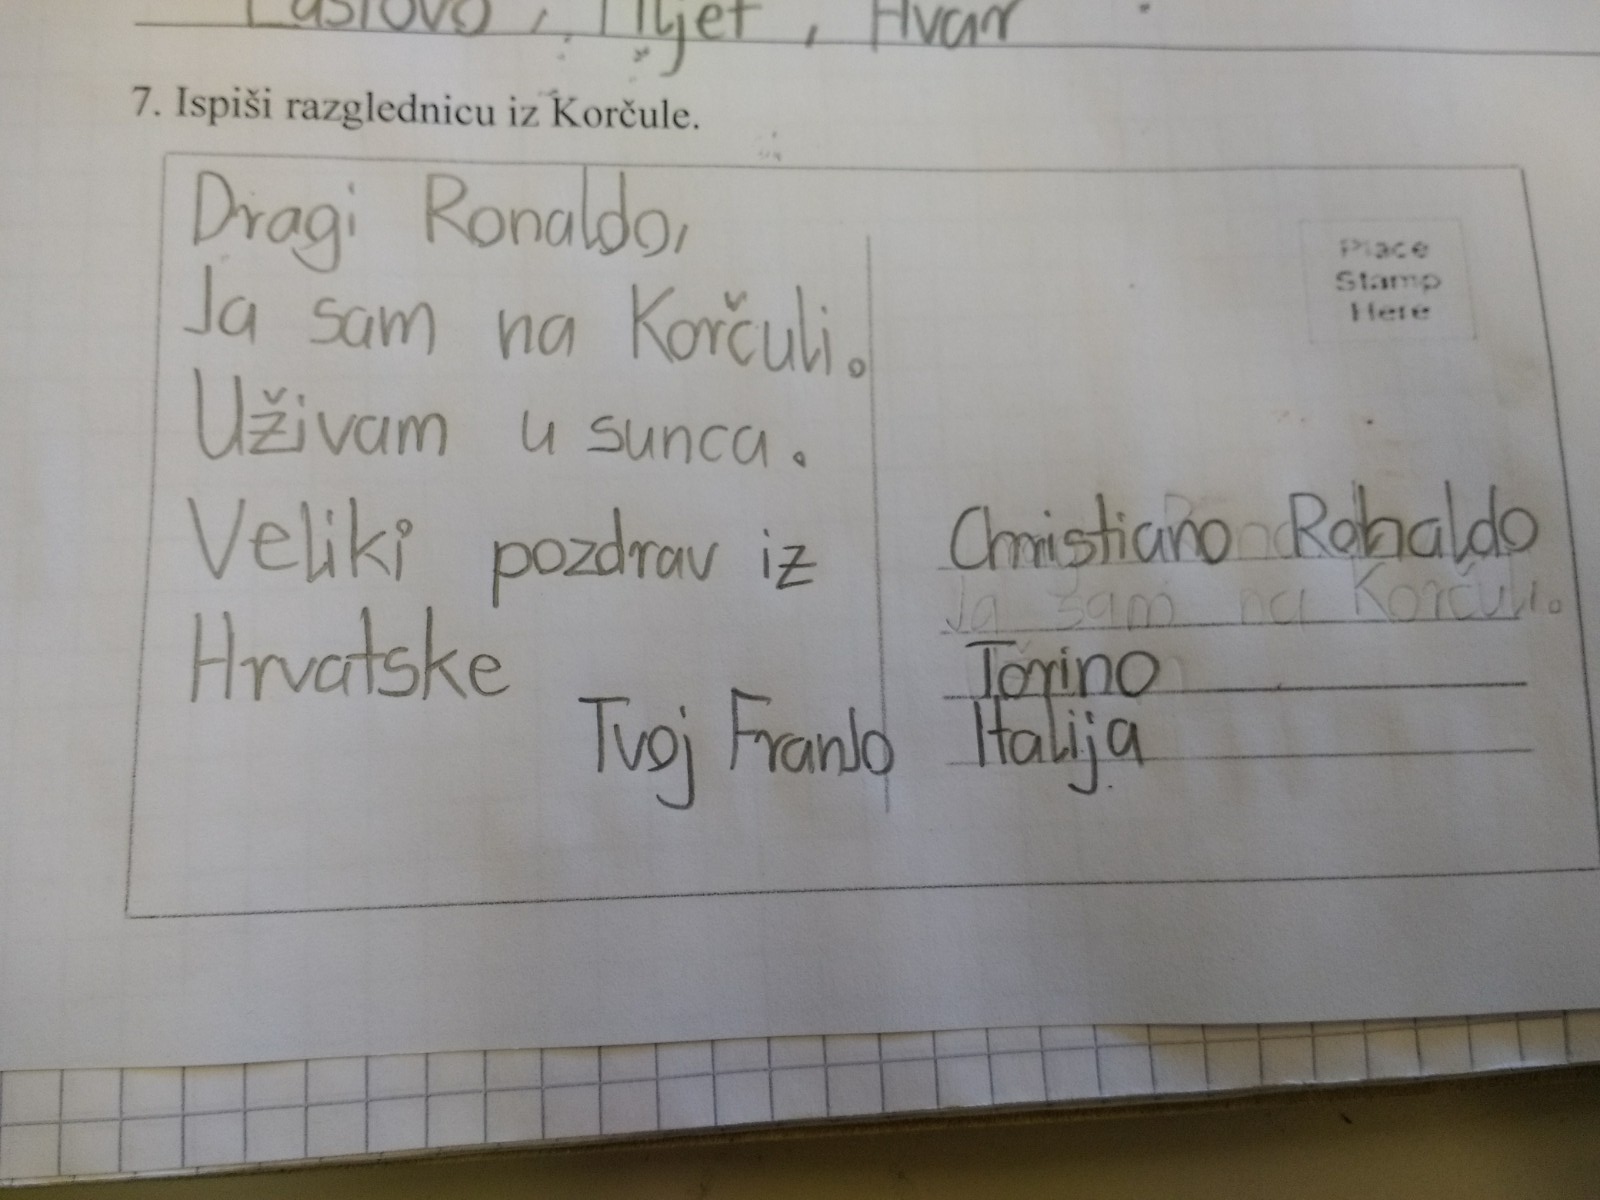 Lastovo, Mljet, Hvar
7. Ispiši razglednicu iz Korčule.
Dragi Ronaldo,
Ja sam na Korčuli.
Uživam u sunca.
Veliki pozdrav iz
Hrvatske
Tvoj Franjo
Place
Stamp
Here
Christiano Ronaldo
Ja sam na Korčuli.
Torino
Italija